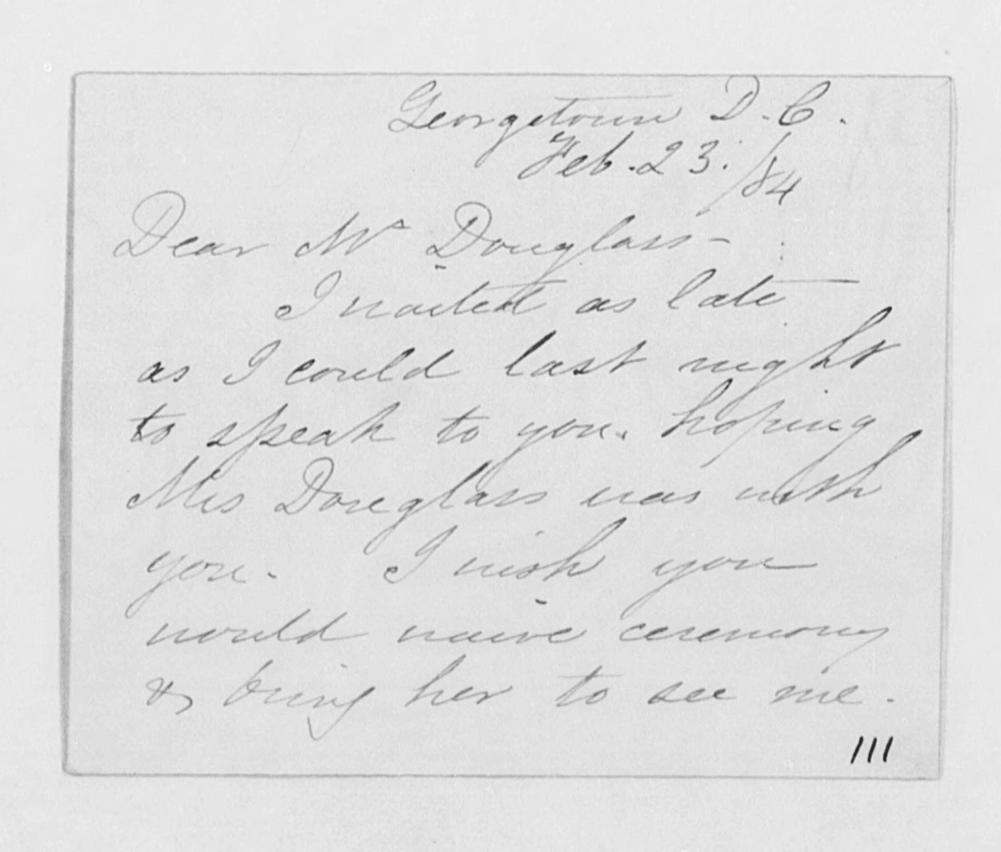 Georgetown D.C.
Feb. 23. /84
Dear Mr Douglass -
I waited as late
as I could last night
to speak to you. hoping
Mrs Douglass was with
you. I wish you
would waive ceremony
& bring her to see me.
111